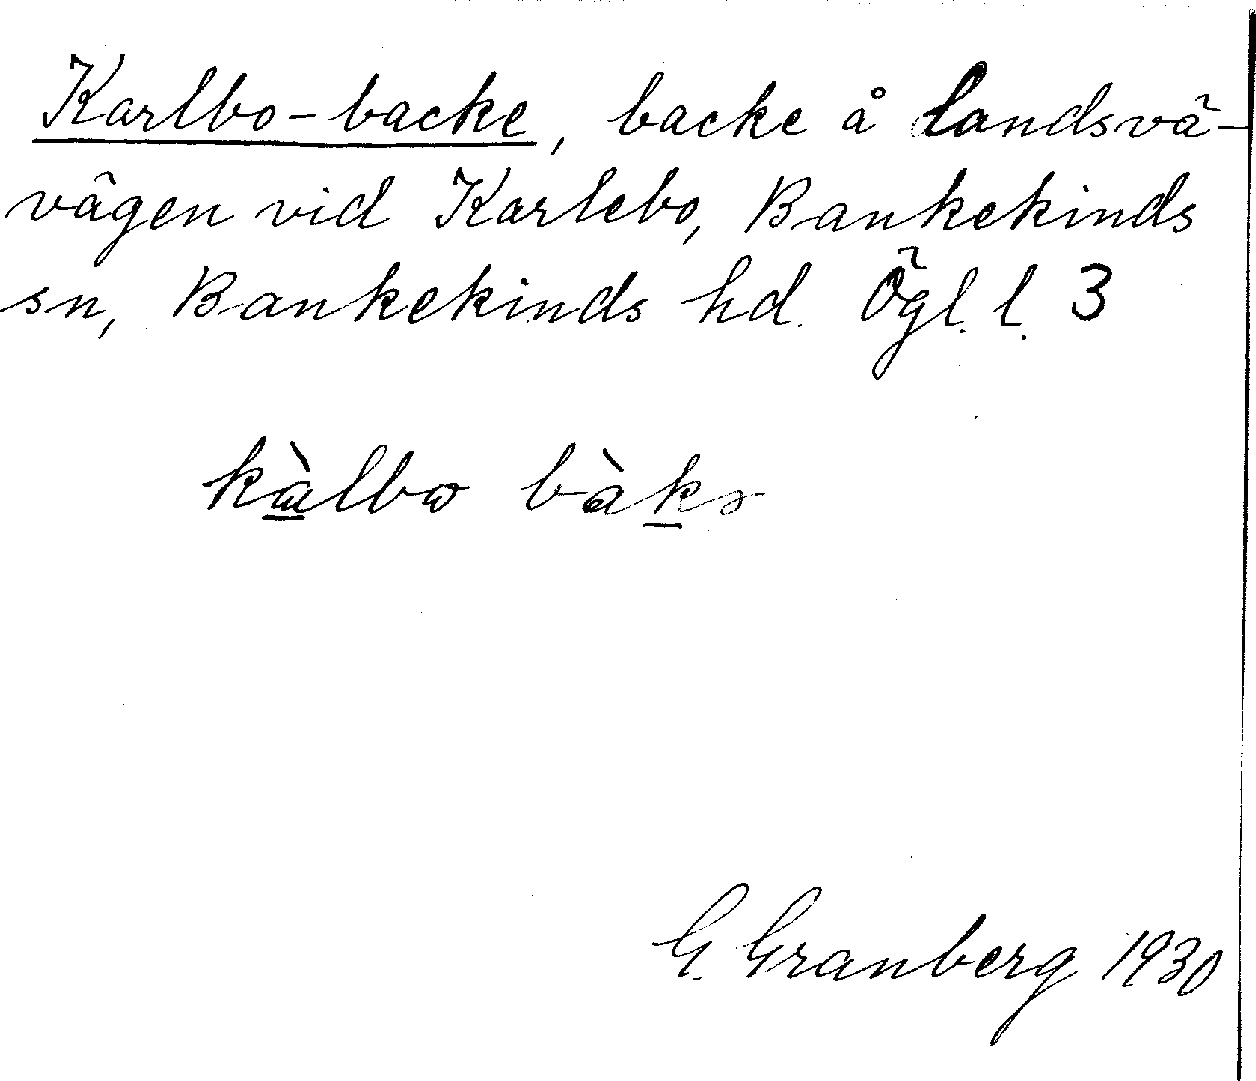 Karlbo-backe, backe å landsvä-
vägen vid Karlebo, Bankekinds
sn, Bankekinds hd. Ögl. l. 3
kàlbω bàkə
G. Granberg 1930